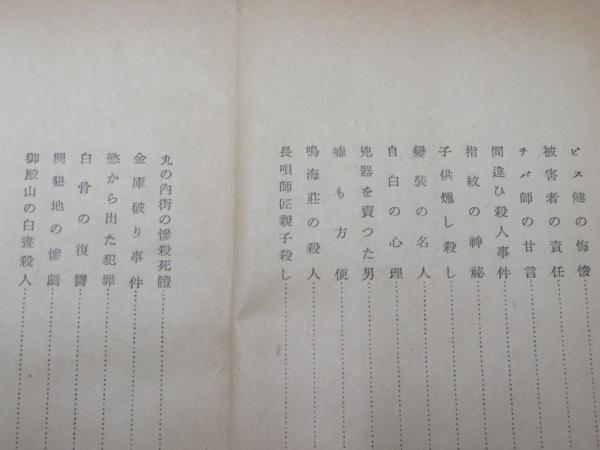 ピス健の悔悛
被害者の責任
チバ師の甘言
間違ひ殺人事件
指紋の神祕
子供燻し殺し
變裝の名人
自白の心理
兇器を賣つた男
嘘も方便
鳴海莊の殺人
長唄師匠親子殺し
丸の內街の慘殺死體
金庫破り事件
慾から出た犯罪
白骨の復讐
開墾地の慘劇
御殿山の白晝殺人